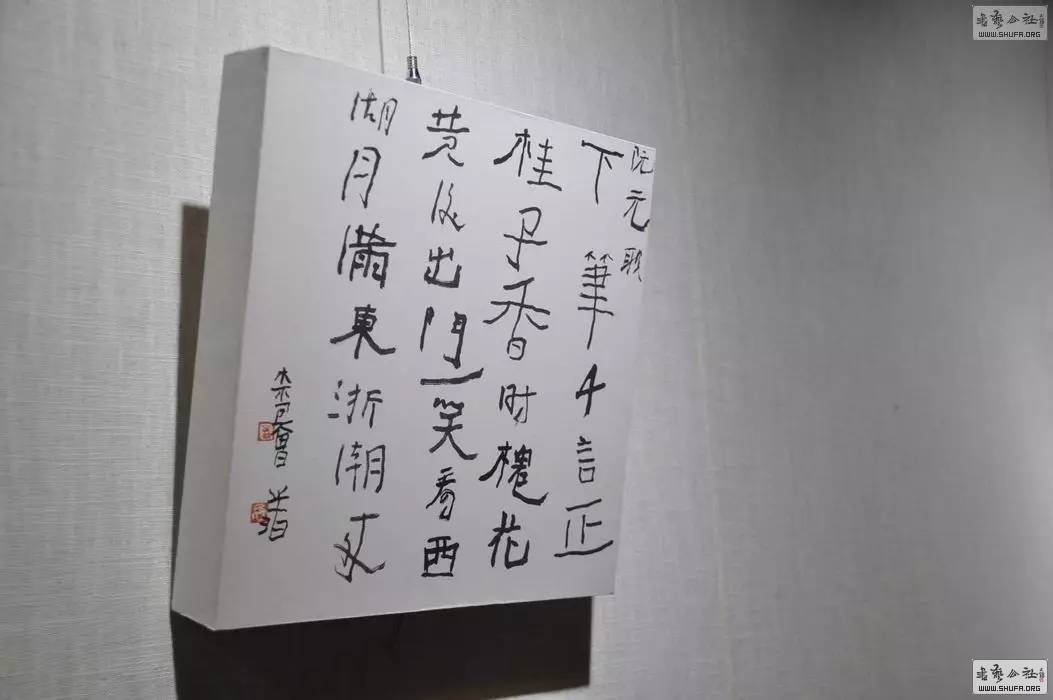 阮元联
下筆千言正
桂子香时槐花
黄後出門一笑看西
湖月滿東浙潮来
書藝公社
WWW.SHUFA.ORG
書藝公社
WWW.SHUFA.ORG